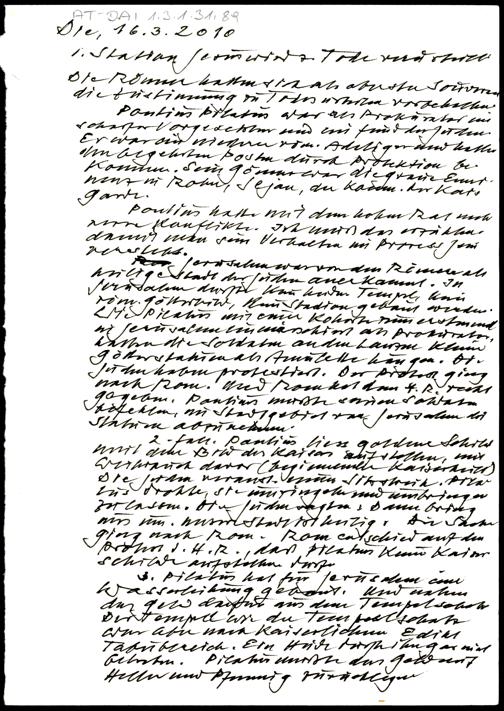 AT-DAI 1.3.1.31.89
Die, 16.3.2010
1. Station Jesus wird z. Tode verurteilt
Die Römer hatten sich als oberster Souverän
die Zustimmung zu Todesurteilen vorbehalten
Pontius Pilatus war als Prokurator ein
scharfer Vorgesetzter und ein Feind der Juden.
Er war ein niederer röm. Adeliger und hatte
den begehrten Posten durch Protektion be-
kommen. Sein Gönner war die graue Emi-
nenz in Rom, Sejan, der Komm. der Kais
garde.
Pontius hatte mit dem hohen Rat mehrere
Konflikte. Ich muß das erzählen
damit man sein Verhalten im Prozess Jesu
versteht.
Jerusalem war von den Römern als
heilige Stadt der Juden anerkannt. In
Jerusalem durfte kein heidn. Tempel, kein
röm. Götterbild, kein Stadion gebaut werden.
Als Pilatus mit einer Kohorte zum erstenmal
in Jerusalem einmarschiert als Prokurator,
hatten die Soldaten an den Lanzen kleine
Götterstatuen als Amulette hängen. Die
Juden haben protestiert. Der Protest ging
nach Rom. Und Rom hat dem H.R. recht
gegeben. Pontius mußte seinen Soldaten
befehlen, im Stadtgebiet von Jerusalem die
Statuen abzunehmen.
2. Fall. Pontius liess goldene Schilde
mit dem Bild des Kaisers aufstellen, mit
Weihrauch davor (beginnender Kaiserkult)
Die Juden veranst. einen Sitzstreik. Pila-
tus drohte, sie umzingeln und umbringen
zu lassen. Die Juden sagten: Dann bring
uns um. unsere Stadt ist heilig. Die Sache
ging nach Rom. Rom entschied auf den
Protest d. H.R., daß Pilatus keine Kaiser
schilde aufstellen dürfe
3. Pilatus hat für Jerusalem eine
Wasserleitung gebaut. Und nahm
das Geld dafür aus dem Tempelschatz
Der Tempel wie der Tempelschatz
war aber nach kaiserlichem Edikt
Tabubereich. Ein Heide durfte ihn gar nicht
betreten. Pilatus mußte das Geld auf
Heller und Pfennig zurücklegen